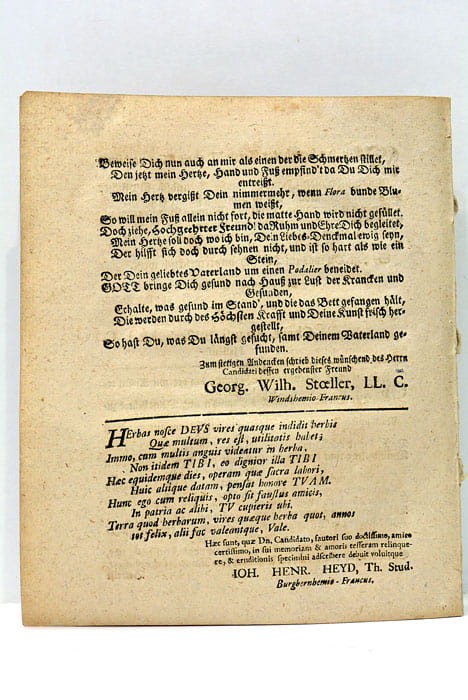 Beweise Dich nun auch an mir als einen der die Schmertzen stillet,
Den jetzt mein Hertze, Hand und Fuß empfind't da Du Dich mir
entreißt.
Mein Hertz vergißt Dein nimmermehr, wenn Flora bunde Blu-
men weißt,
So will mein Fuß allein nicht fort, die matte Hand wird nicht gefüllet.
Doch ziehe, Hochgeehrter Freund! da Ruhm und Ehre Dich begleitet,
Mein Hertze soll doch wo ich bin, Dein Liebes-Denckmal ewig seyn,
Der hilfft sich doch durch sehnen nicht, und ist so hart als wie ein
Stein,
Der Dein geliebtes Vaterland um einen Podalier beneidet.
GOTT bringe Dich gesund nach Hauß zur Lust der Krancken und
Gesunden,
Erhalte, was gesund im Stand', und die das Bett gefangen hält,
Die werden durch des Höchsten Krafft und Deine Kunst frisch her-
gestellt,
So hast Du, was Du längst gesucht, samt Deinem Vaterland ge-
funden.
Zum stetigen Andencken schrieb dieses wünschend des Herrn
Candidati dessen ergebenster Freund
Georg. Wilh. Stœller, LL. C.
Windshemio-Francus.
HErbas nosce DEVS vires quasque indidit herbis
Quæ multum, res est, utilitatis habet;
Immo, cum multis anguis videatur in herba,
Non itidem TIBI, eo dignior illa TIBI
Hæc equidemque dies, operam quæ sacra labori,
Huic alijque datam, pensat honore TVAM.
Hunc ego cum reliquis, opto sit faustus amicis,
In patria ac alibi, TV cupieris ubi.
Terra quod herbarum, vires quæque herba quot, annos
tot felix, alii fac valeantque, Vale.
Hæc sunt, quæ Dn. Candidato, fautori suo doctissimo, amico
certissimo, in sui memoriam & amoris tesseram relinque-
re, & eruditionis specimini adscribere debuit voluitque
JOH. HENR. HEYD, Th. Stud.
Burgbernhemio-Francus.